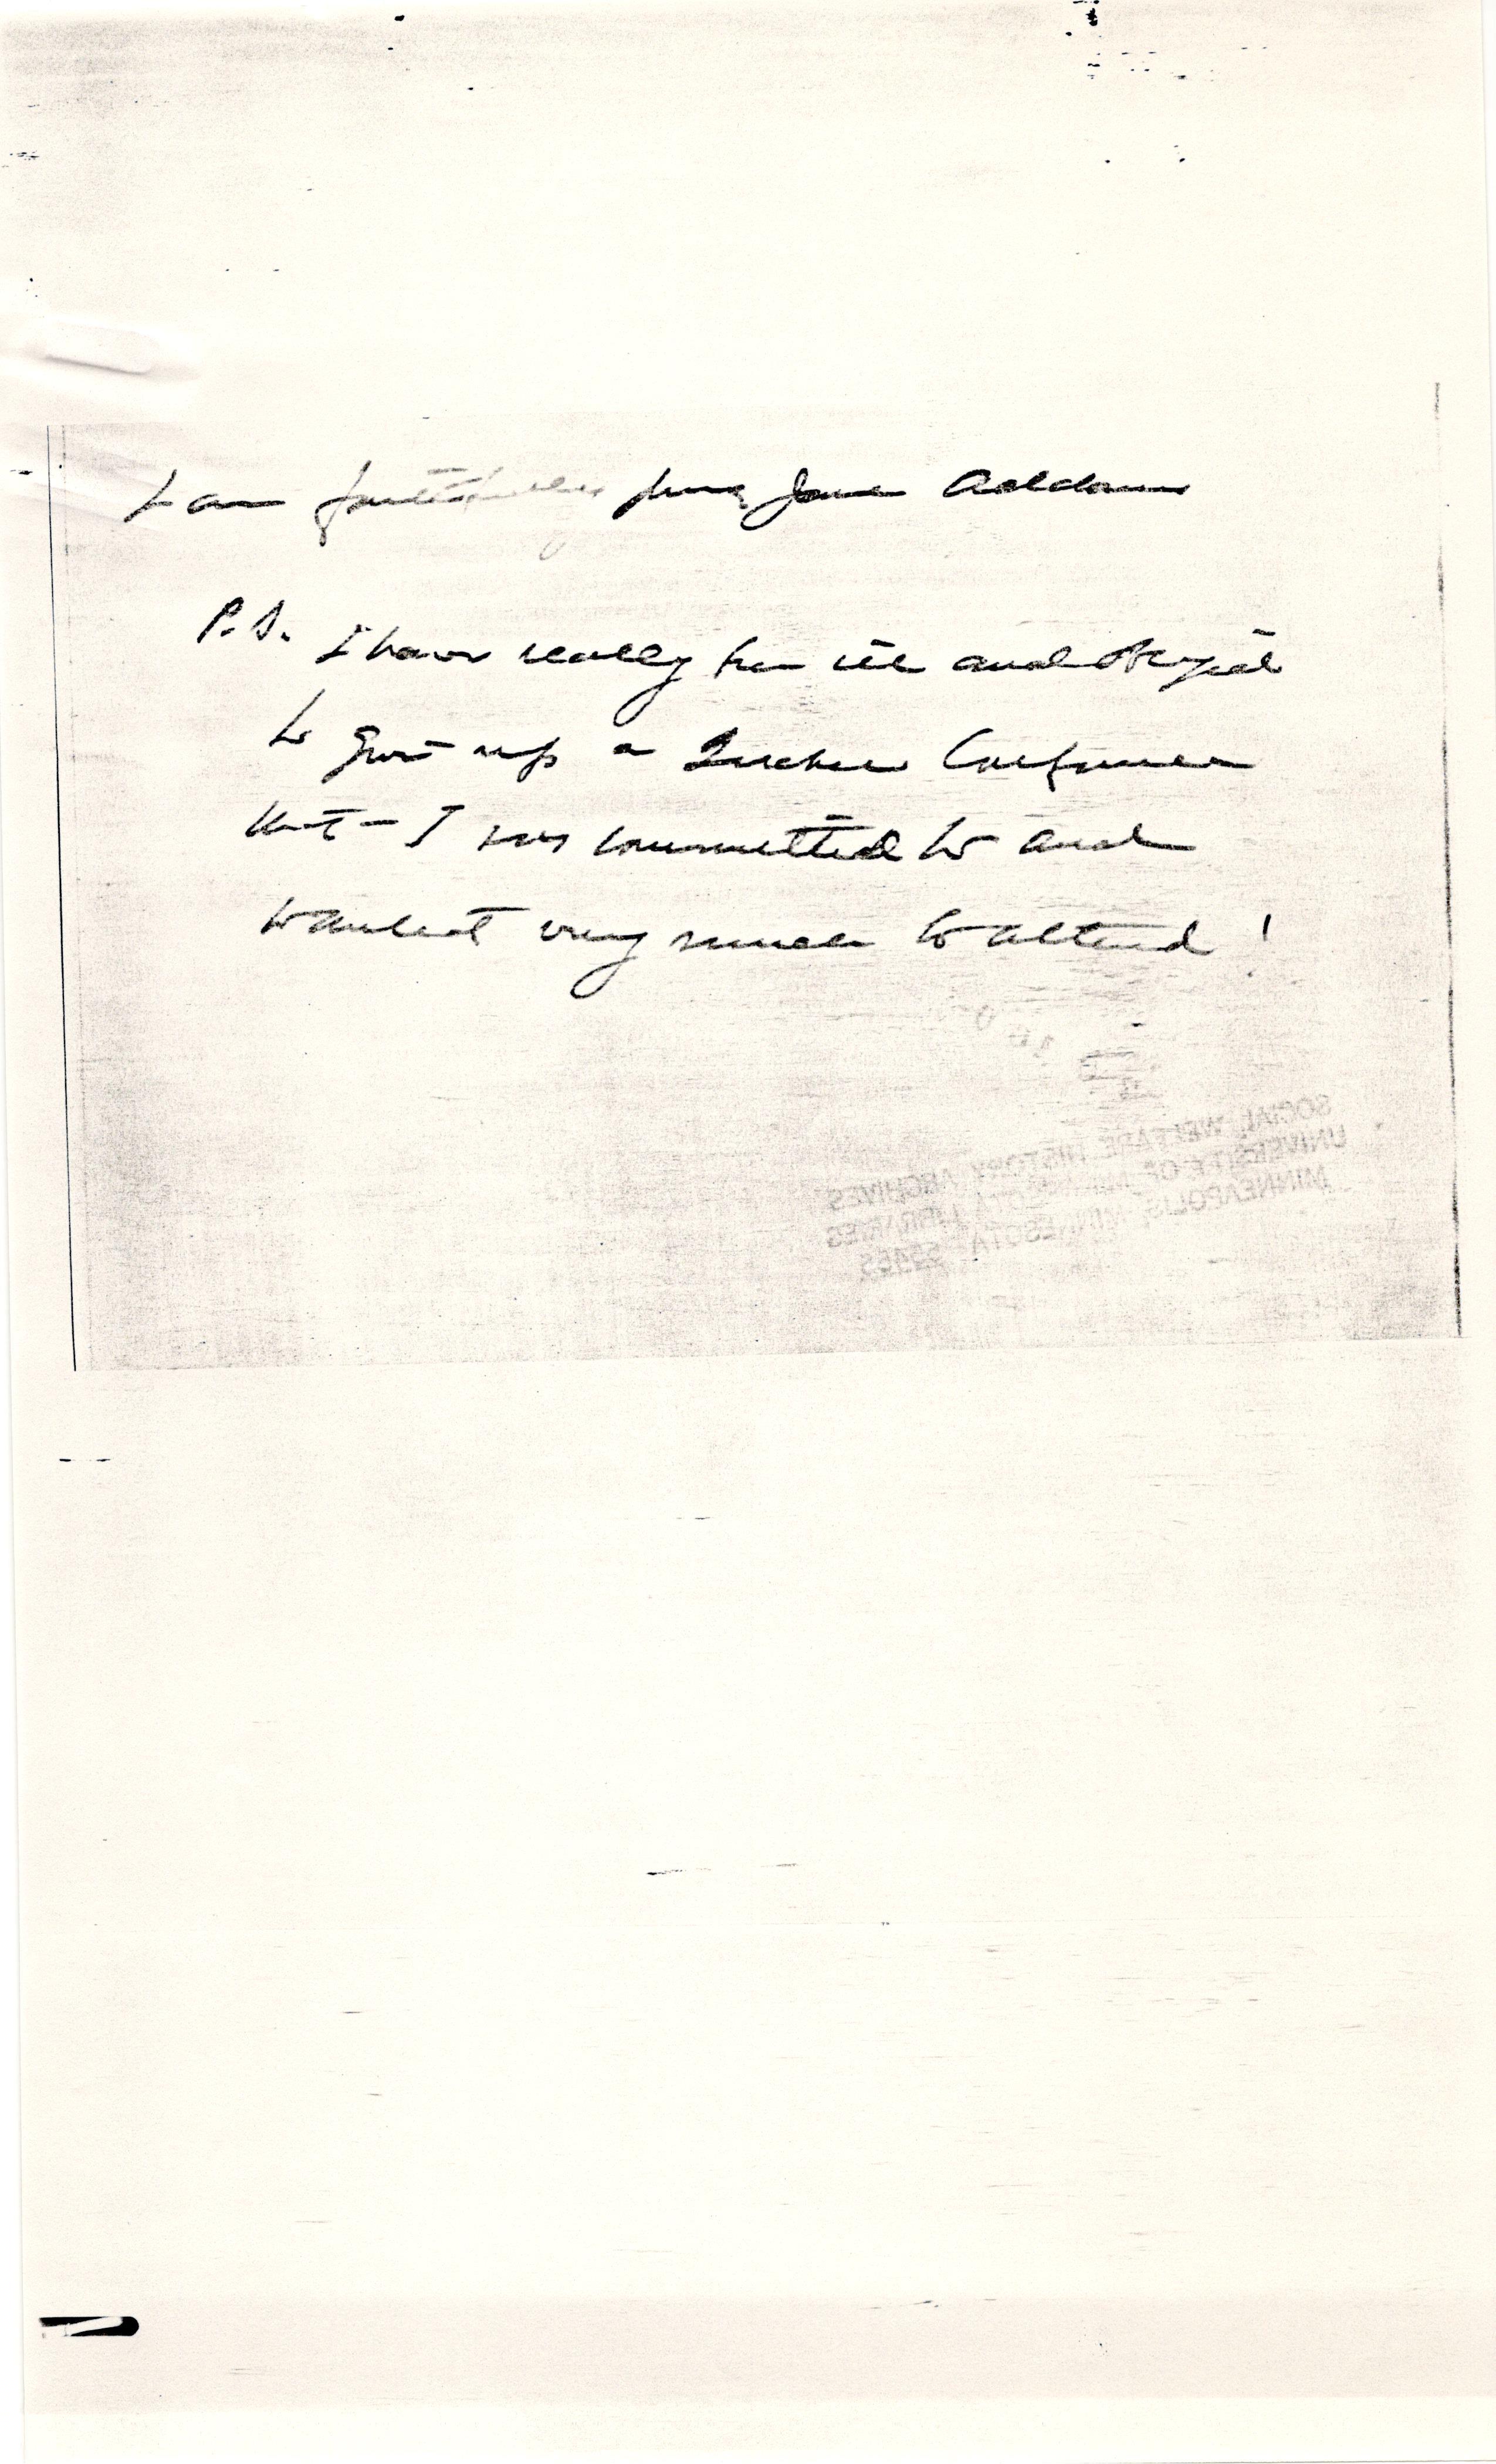 I am faithfully yours Jane Addams
P.S. I have really been ill and obliged
to give up a Quaker Conference
that I was committed to and
wanted very much to attend!
SOCIAL WELFARE HISTORY ARCHIVES
UNIVERSITY OF MINNESOTA LIBRARIES
MINNEAPOLIS, MINNESOTA 55455